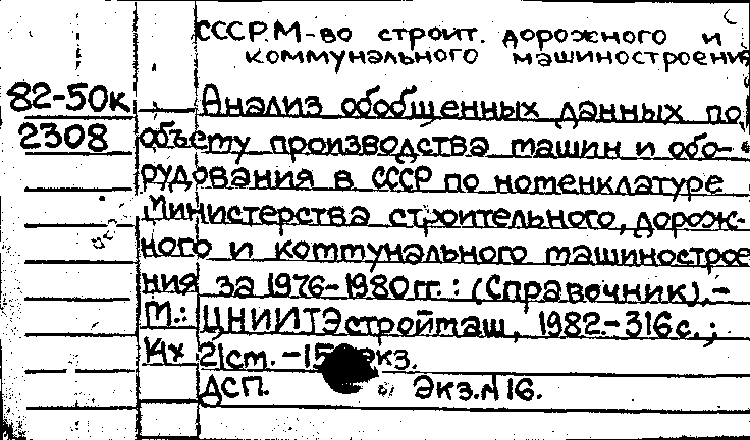 СССР. М-во строит. дорожного и
коммунального машиностроения
82-50к Анализ обобщенных данных по
2308 объему производства машин и обо-
рудования в СССР по номенклатуре
Министерства строительного, дорож-
ного и коммунального машинострое
ния за 1976-1980 гг.: (Справочник).-
М.: ЦНИИТЭстроймаш, 1982-316с.;
21ст. - экз.
ДСП. Экз.№16.